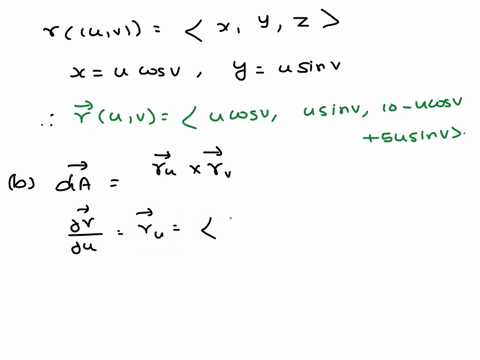 r(u,v) = < x, y, z >
x = u cosv , y = u sinv
∴ r⃗(u,v) = < u cosv, u sinv, 10 - u cosv
+ 5u sinv>.
(b) dA⃗ = r⃗u × r⃗v
∂r⃗/∂u = r⃗u = <